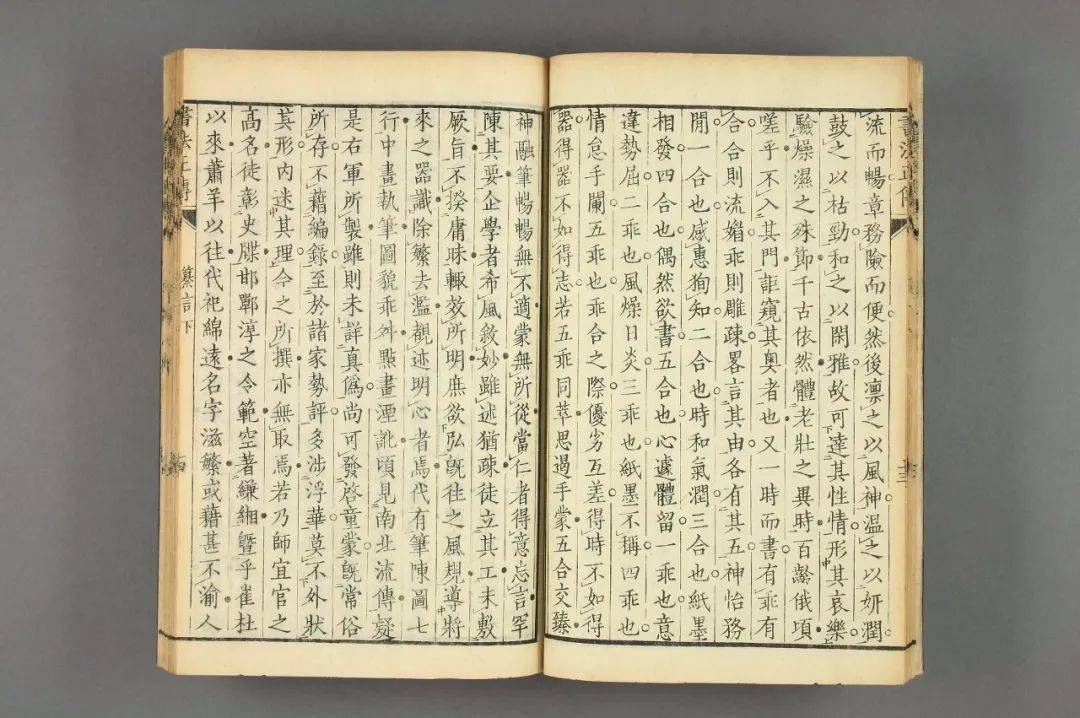 書法正傳
流而暢章務險而便然後凛之以風神溫之以妍潤
鼓之以枯勁和之以閑雅故可達其性情形其哀樂
驗燥濕之殊節千古依然體老壯之異時百齡俄頃
嗟乎不入其門詎窺其奥者也又一時而書有乖有
合合則流媚乖則雕疎畧言其由各有其五神怡務
閒一合也感惠狥知二合也時和氣潤三合也紙墨
相發四合也偶然欲書五合也心遽體留一乖也意
違勢屈二乖也風燥日炎三乖也紙墨不稱四乖也
情怠手闌五乖也乖合之際優劣互差得時不如得
器得器不如得志若五乖同萃思遏手蒙五合交臻
神融筆暢暢無不適蒙無所從當仁者得意忘言罕
陳其要企學者希風敘妙雖述猶疎徒立其工未敷
厥旨不揆庸昧輙效所明庶欲弘旣往之風規導將
來之器識除繁去濫觀迹明心者焉代有筆陳圖七
行中畫執筆圖貌乖舛點畫湮訛頃見南北流傳疑
是右軍所製雖則未詳真僞尚可發啓童蒙旣常俗
所存不藉編錄至於諸家勢評多涉浮華莫不外狀
其形內迷其理今之所撰亦無取焉若乃師宜官之
高名徒彰史牒邯鄲淳之令範空著縑緗暨乎崔杜
以來蕭羊以往代祀綿遠名字滋繁或藉甚不渝人
書法正傳
纂言下